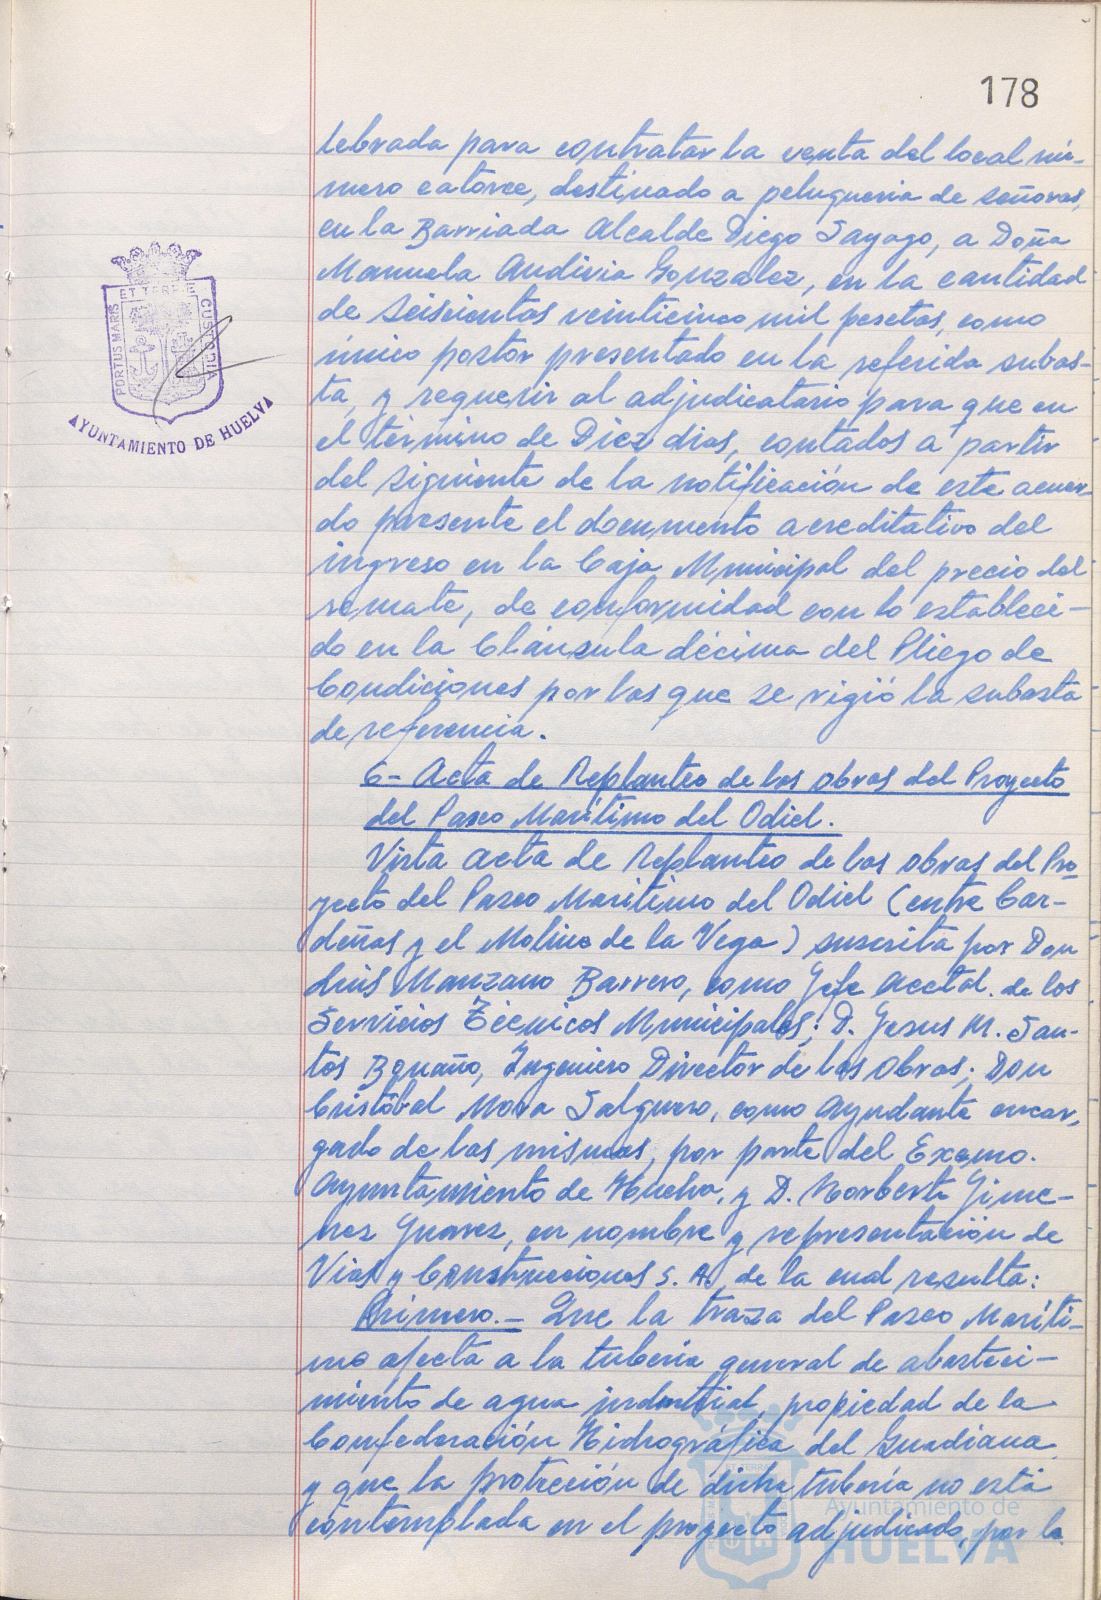 178
lebrada para contratar la venta del local nú-
mero catorce, destinado a peluqueria de señoras,
en la Barriada Alcalde Diego Sayago, a Doña
Manuela Audivia Gonzalez, en la cantidad
de seiscientas veinticinco mil pesetas, como
único postor presentado en la referida subas-
ta, y requerir al adjudicatario para que en
el término de Diez dias, contados a partir
del siguiente de la notificación de este acuer-
do presente el documento acreditativo del
ingreso en la Caja Municipal del precio del
remate, de conformidad con lo estableci-
do en la Cláusula décima del Pliego de
Condiciones por las que se rigió la subasta
de referencia.
6- Acta de Replanteo de las obras del Proyecto
del Paseo Marítimo del Odiel.
Vista acta de Replanteo de las obras del Pro-
yecto del Paseo Maritimo del Odiel (entre Car-
deñas y el Molino de la Vega) suscrita por Don
Luis Manzano Barrero, como Jefe Acctal. de los
Servicios Técnicos Municipales; D. Jesus M. San-
tos, Ingeniero Director de las Obras; Don
Cristóbal Mora Salguero, como Ayudante encar-
gado de las mismas, por parte del Excmo.
Ayuntamiento de Huelva, y D. Norberto Jime-
nez Juarez, en nombre y representación de
Vias y Construcciones S. A. de la cual resulta:
Primero.- Que la traza del Paseo Maríti-
mo afecta a la tuberia general de abasteci-
miento de agua industrial, propiedad de la
Confederación Hidrográfica del Guadiana
y que la protección de dicha tubería no está
contemplada en el proyecto adjudicado, por lo
PORTUS MARIS
ET TERRE
CUSTODIA
AYUNTAMIENTO DE HUELVA
Ayuntamiento de
HUELVA